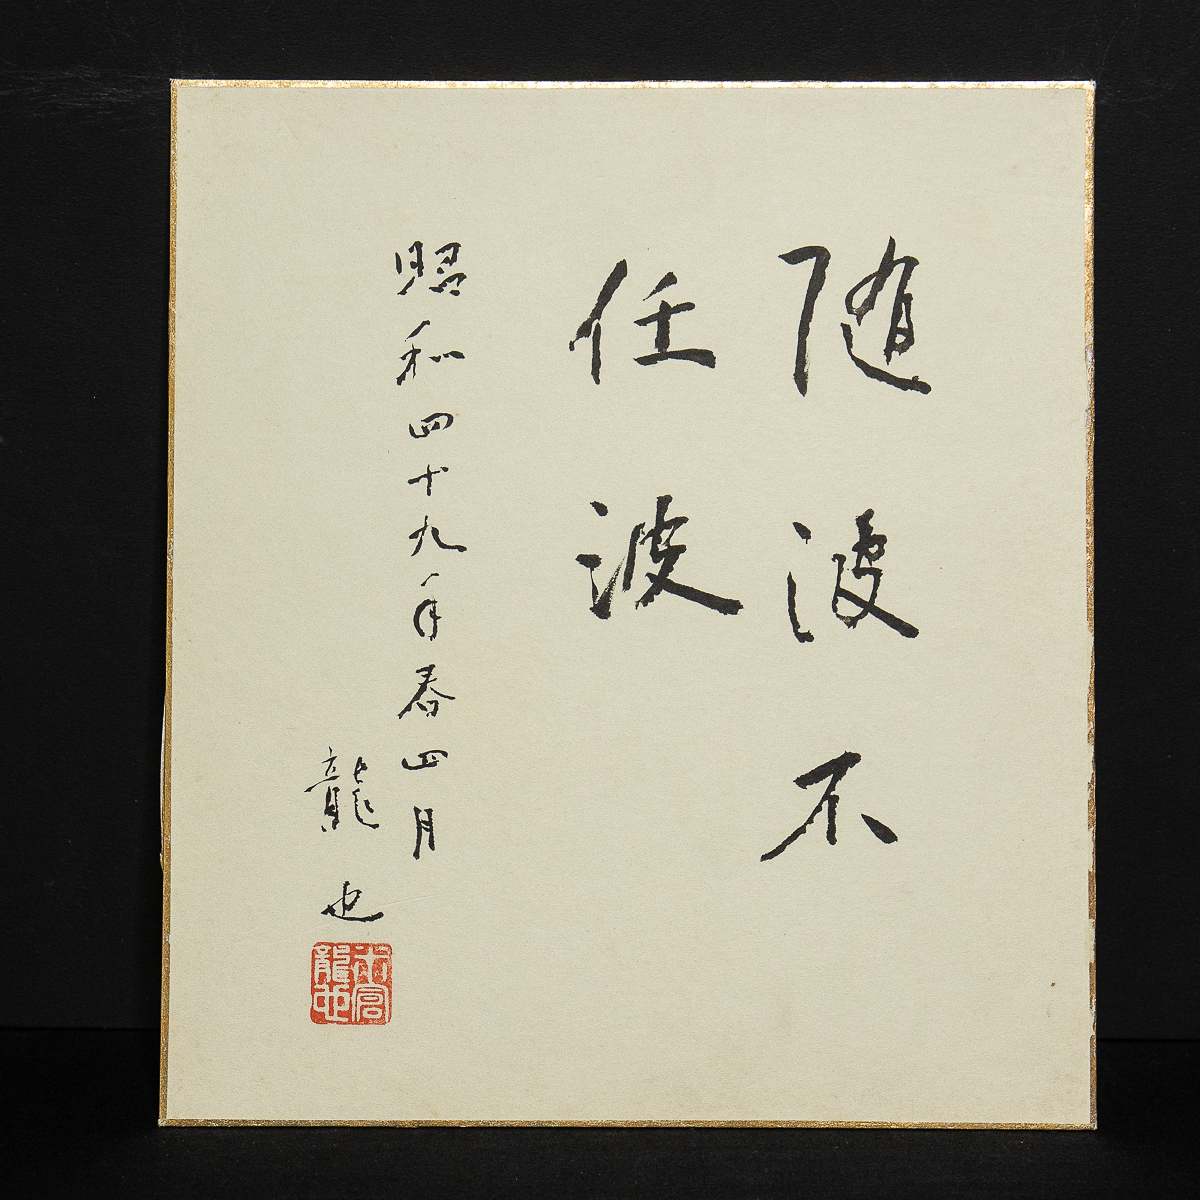 随波不
任波
昭和四十九年春四月
龍也